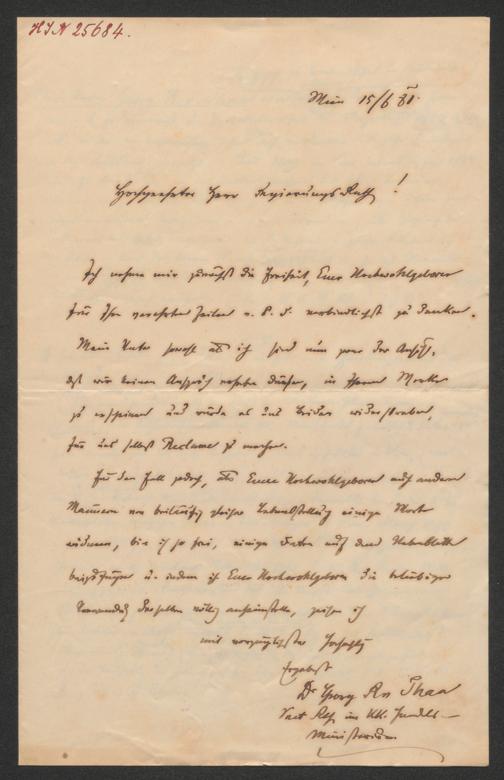 HIN 25684.
Wien 15/6 81.
Hochgeehrter Herr Regierungs Rath!
Ich nehme mir zunächst die Freiheit, Euer Hochwohlgeboren
für Ihre geehrten Zeilen v. 8. d. verbindlichst zu danken.
Mein Vater sowohl als ich sind nun zwar der Ansicht,
daß wir keinen Anspruch erheben dürfen, in Ihrem Werke
zu erscheinen und würde es uns beiden widerstreben,
für uns selbst Reclame zu machen.
Für den Fall jedoch, als Euer Hochwohlgeboren auch andern
Männern von beiläufig gleicher Lebensstellung einige Worte
widmen, bin ich so frei, einige Daten auf dem Nebenblatte
beizufügen u. indem ich Euer Hochwohlgeboren die beliebige
Verwendung derselben völlig anheimstelle, zeichne ich
mit vorzüglichster Hochachtung
Ergebenst
Dr Georg Rr Thaa
Sect Rath im KK. Handels-
Ministerium